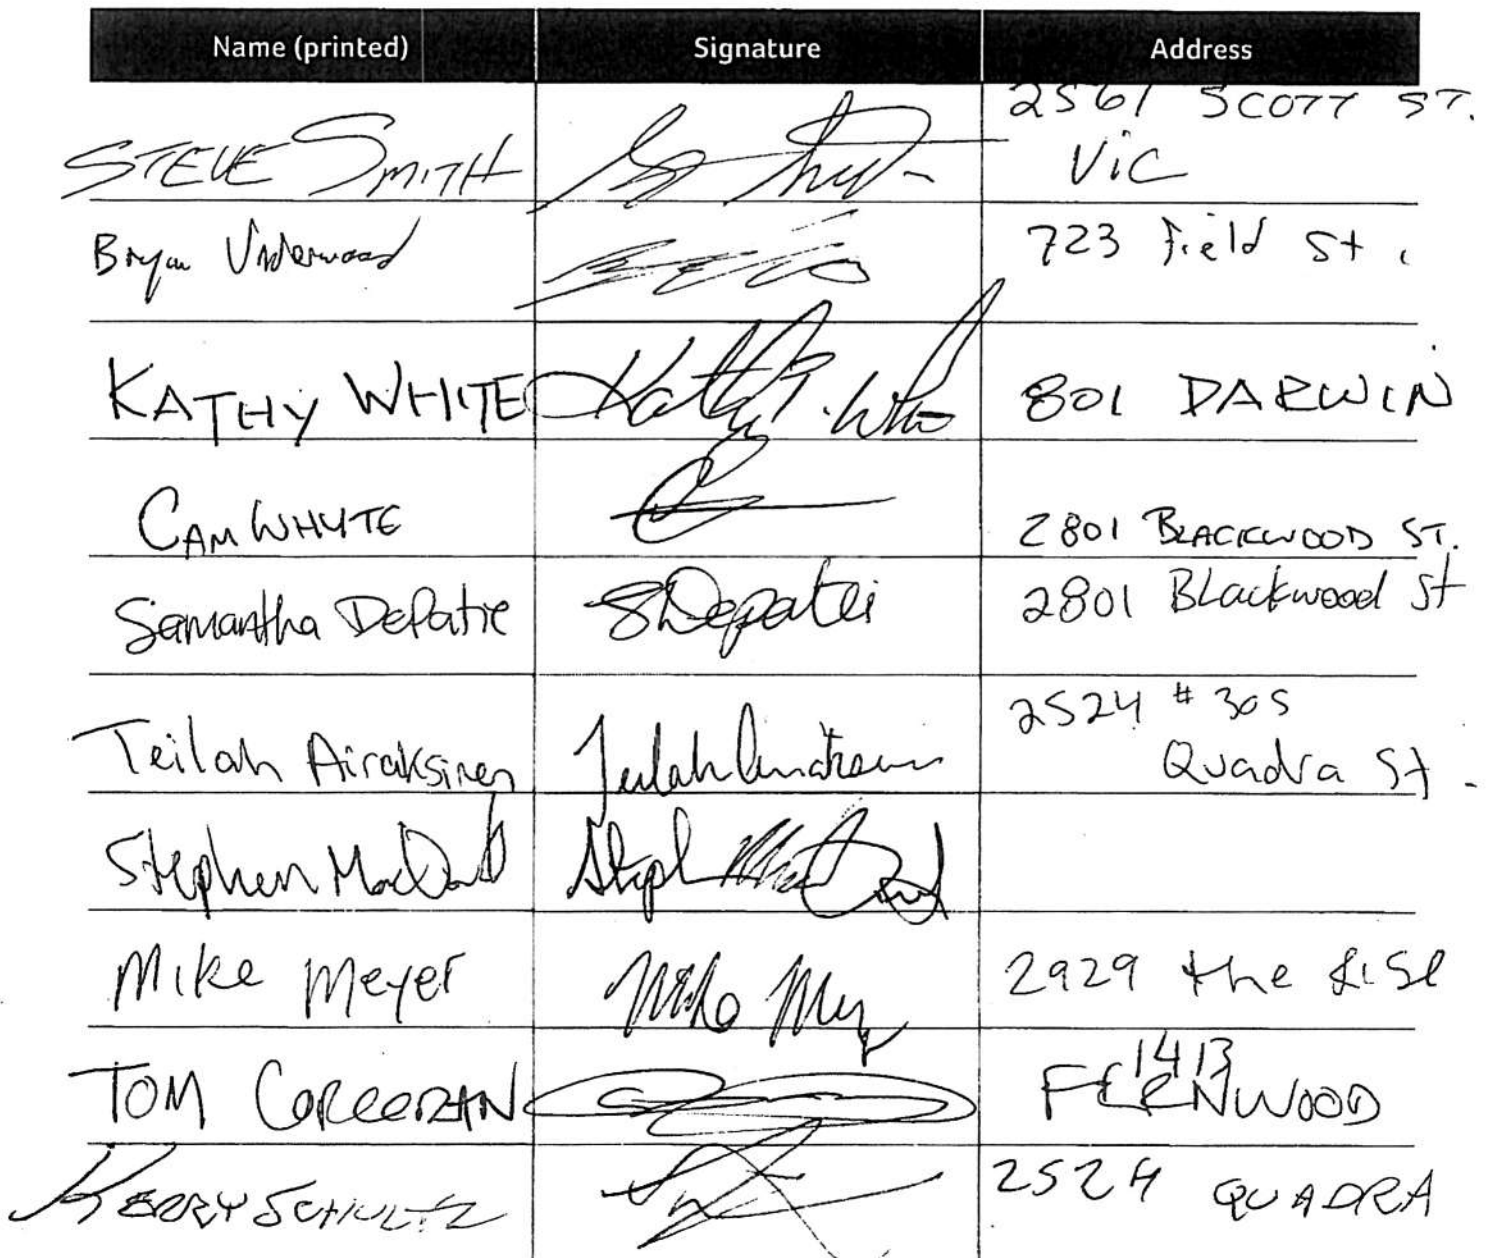 Name (printed) Signature Address
STEVE SMITH 2561 SCOTT ST.
VIC
Bryan Underwood 723 Field St.
KATHY WHITE Kathy White 801 DARWIN
CAM WHYTE 2801 BLACKWOOD ST.
Samantha DePatie SDepatie 2801 Blackwood St
Teilah Airaksinen Teilah Airaksinen 2524 #305
Quadra St.
Stephen MacDonald
Mike Meyer Mike Mey 2929 the Rise
1413
TOM CORCORAN FERNWOOD
KERRY SCHULTZ 2524 QUADRA